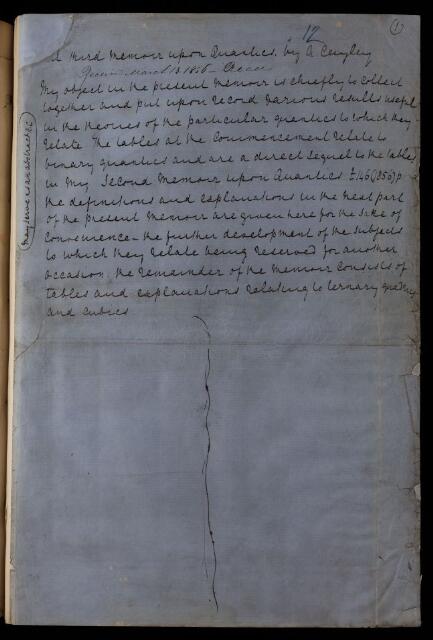 12
1
A Third Memoir upon Quantics. by A Cayley
March 13 1856
My object in the present Memoir is chiefly to collect
together and put upon record various results useful
in the theories of the particular quantics to which they
relate The tables at the commencement relate to
binary quantics and are a direct sequel to the tables
in my Second Memoir upon Quantics t. 146 (1856) p
the definitions and explanations in the next part
of the present Memoir are given here for the sake of
convenience – the further development of the subjects
to which they relate being reserved for another
occasion. the remainder of the Memoir consists of
tables and explanations relating to ternary quadrics
and cubics
may serve as an abstract